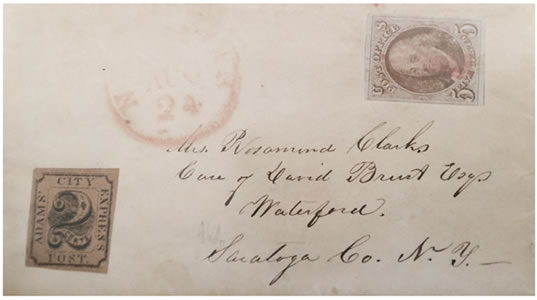 AUG
24
Mrs. Rosamond Clarks
Care of David Esqr
Waterford.
Saratoga Co. N. Y.
CITY
ADAMS'
EXPRESS
2
POST.